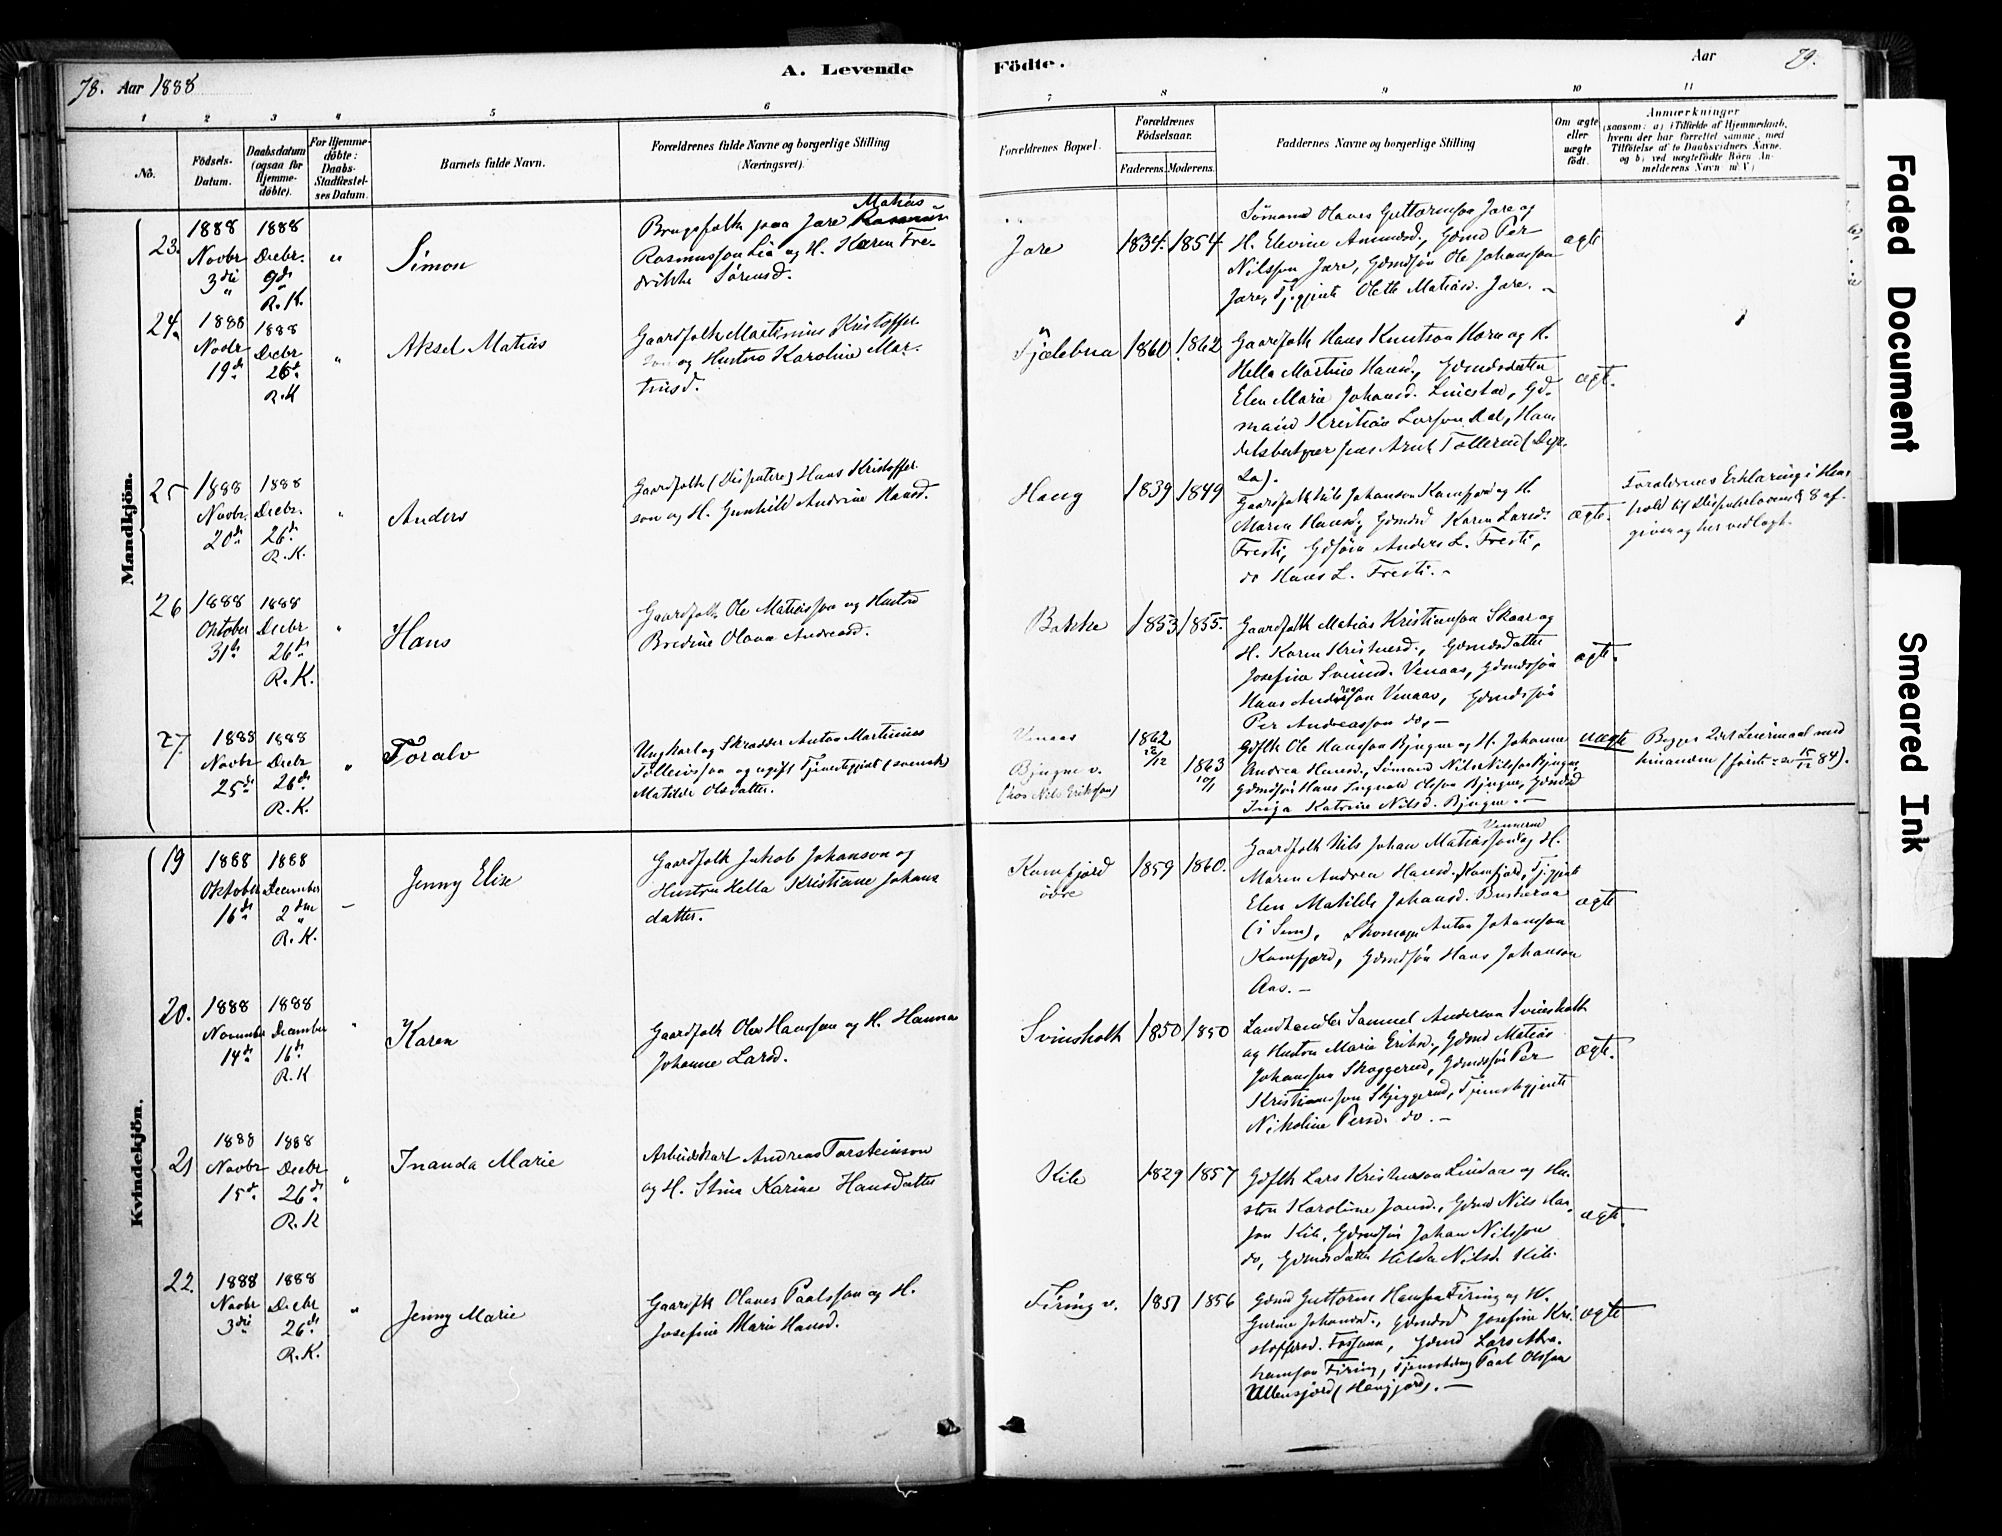 78. Aar 1888
A. Levende
Födte.
Aar
79.
1 2 3 4 5 6
7 8 9 10 11
No.
Födsels-
Datum.
Daabsdatum
(ogsaa for
Hjemme-
döbte).
For Hjemme-
döbte:
Daabs-
Stadfæstel-
ses Datum.
Barnets fulde Navn.
Forældrenes fulde Navne og borgerlige Stilling
(Næringsvei).
Forældrenes Bopæl.
Forældrenes
Födselsaar.
Faderens. Moderens.
Faddernes Navne og borgerlige Stilling
Om ægte
eller
uægte
födt.
Anmærkninger
(saasom: a) i Tilfælde af Hjemmedaab,
hvem der har forrettet samme, med
Tilföielse af to Daabsvidners Navne,
og b) ved uægtefödte Börn An-
melderens Navn m. V.)
Mandkjön.
23.
1888
Novbr
3die
1888
Decbr.
9de
R. K.
"
Simon
Matias
Brugsfolk paa Jare Rasmus
Rasmusson Lia og H. Karen Fre-
drikke Sörensd.
Jare
1834. 1854.
Sömand Olaves Guttormson Jare og
H. Elevine Amundsd., Gdmd Per
Nilsson Jare, Gdmdsön Ole Johansson
Jare, Tj.gjente Olette Matiasd. Jare. -
ægte
24.
1888
Novbr
19de
1888
Decbr
26de
R. K
"
Aksel Matias
Gaardfolk Martinius Kristoffer-
son og Hustro Karoline Mar-
tinsd.
1860 1862
Gaardfolk Hans Knutson Horn og H.
Hella Martine Hansd., Gdmdsdatter
Elen Marie Johansd. Linestad, Gd-
mand Kristian Larson Aal, Han-
ægt.
25
1888
Novbr.
20de
1888
Decbr.
26de
R. K.
"
Anders
Gaardfolk (Dissentere) Hans Kristoffer-
son og H. Gunhild Andrine Hansd.
Haug
1839 1849
Gaardfolk Nils Johanson Kamfjord og H.
Maren Hansd, Gdmdsd Karen Larsd.
Fresti, Gdsön Anders L. Fresti,
do Hans L. Fresti. -
ægte.
Forældrenes Erklæring i Hen-
hold til Dissenterlovens § 8 af-
given og her vedlagt.
26
1888
Oktober
31te
1888
Decbr
26de
R. K.
"
Hans
Gaardfolk Ole Matiasson og Hustro
Bredine Olava Andreasd.
Bakke
1853 1855.
Gaardfolk Matias Kristianson Skaar og
H. Karen Kristensd., Gdmdsdatter
Josefine Svensd. Venaas, Gdmdssön
Hans Andreasson Venaas, Gdmdssön
Per Andreasson do, -
ægte.
27.
1888
Novbr
25de
1888
Decbr
26de
R. K.
"
Toralv
Ungkarl og Skrædder Anton Martinius
Tollevsson og ugift Tjenestegjente (svensk)
Matilde Olsdatter.
Venaas
Bjugne v.
(hos Nils Erikson)
1862
22/12
1863
10/1
Gdflk Ole Hansson Bjugne og H. Johanne
Andrea Hansd., Sömand Nils Nilsson Bjugne,
Gdmdsön Hans Ingvald Olsson Bjugne, Gdmdsd
Inga Katrine Nilsd. Bjugne. -
uægte
Begges 2det Leiermaal med
hinanden (förste = 15/12 84).
Kvindekjön.
19
1888
Oktober
16de
1888
December
2den
R. K.
-
Jenny Elise
Gaardfolk Jakob Johanson og
Hustro Hella Kristiane Johans-
datter.
Kamfjord
övre
1859 1860.
Gaardfolk Nils Johan Matiasson og H.
Maren Andrea Hansd. Kamfjord, Tj.gjente
Elen Matilde Johansd. Buskerea
(i Sem), Skomager Anton Johansson
Kamfjord, Gdmdsön Hans Johanson
Aas. -
ægte
20.
1888
November
14de
1888
December
16de
R. K
"
Karen
Gaardfolk Olav Hansson og H. Hanna
Johanne Larsd.
Svinsholt
1850 1850
Landhandler Samuel Anderson Svinsholt
og Hustro Marie Eriksd., Gdmd Matias
Johansson Skoggerud, Gdmdssön Per
Kristiansson Skjeggerud, Tjenestegjente
Nikoline Persd. do. -
ægte.
21
1888
Novbr
15de
1888
Decbr
26de
R. K
"
Inanda Marie
Arbeidskarl Andreas Torsteinson
og H. Stina Karine Hansdatter
Kile
1829 1857
Gdflk Lars Kristenson Lindaas og Hu-
stro Karoline Jansd., Gdmd Nils Har-
son Kile, Gdmdsön Johan Nilsson
do, Gdmdsdatter Hilda Nilsd. Kile.
ægte.
22.
1888
Novbr
3die
1888
Decbr
26de
R. K.
"
Jenny Marie
Gaardflk Olaves Paalsson og H.
Josefine Marie Hansd.
Firing v.
1851 1856
Gdmd Guttorm Hansson Firing og H.
Gurine Johansd., Gdmdsd Josefine Kri-
stoffersd. Fossane, Gdmd Lars Abra-
hamson Firing, Tjenestedreng Paal Olsson
ægte
Faded Document
Smeared Ink